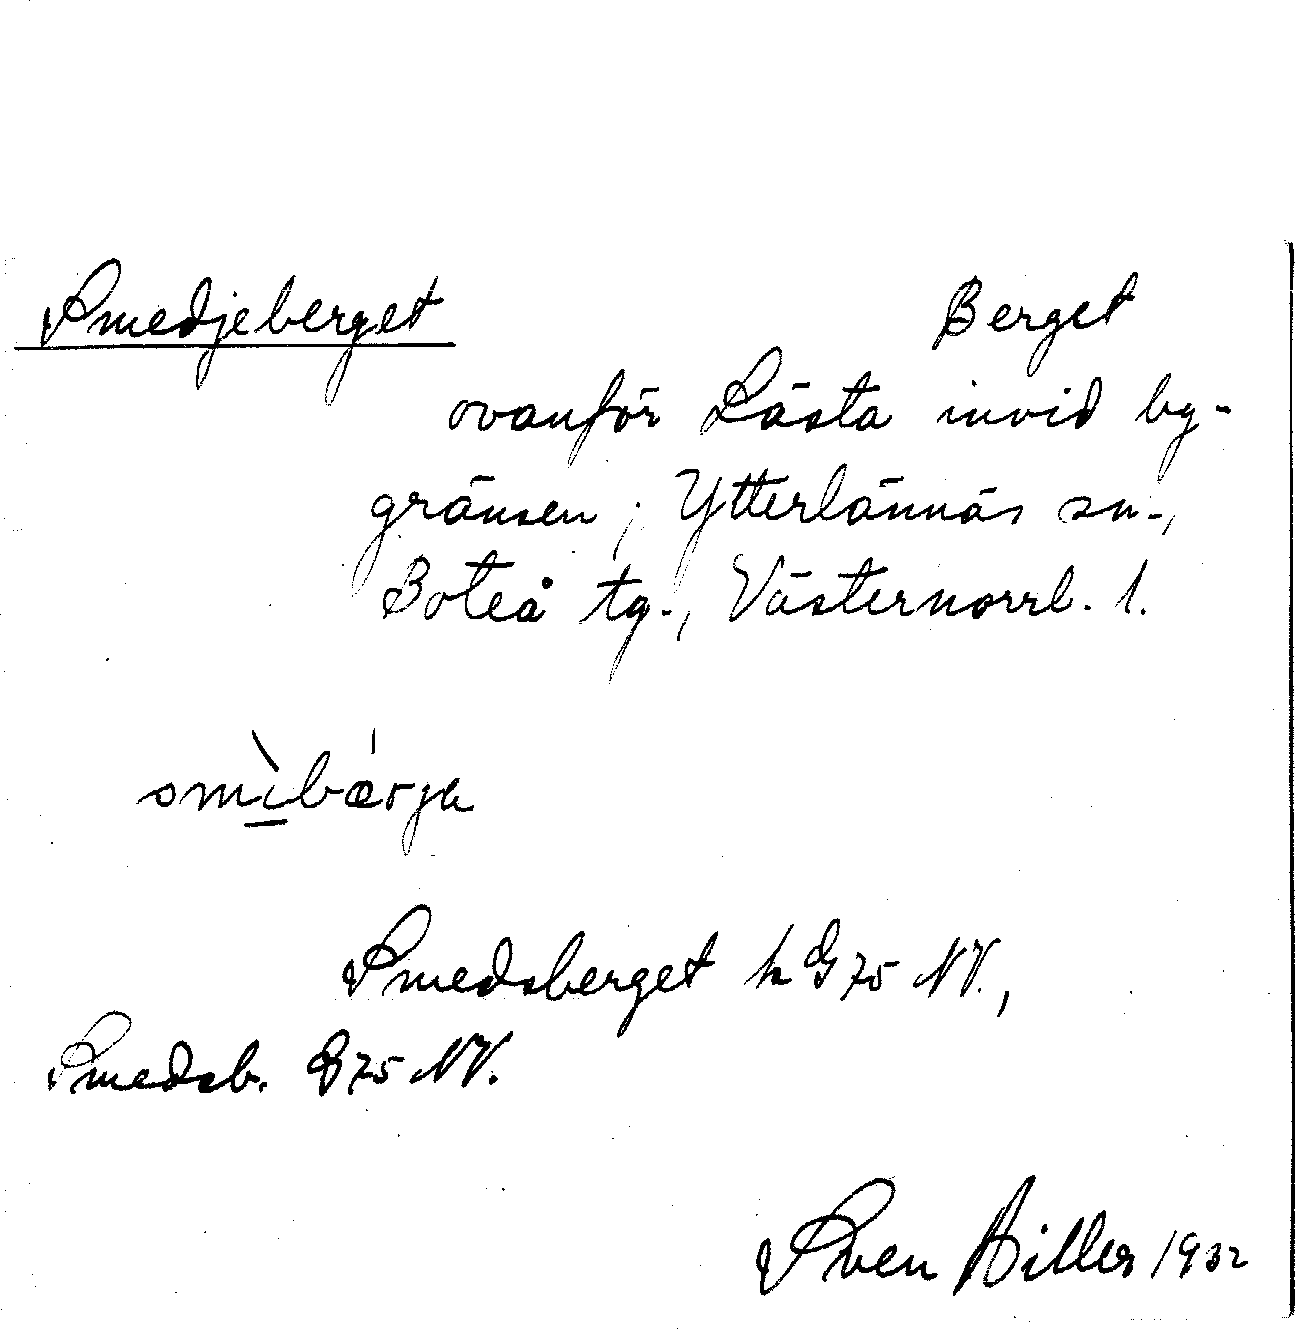 Smedjeberget Berget
ovanför Lästa invid by-
gränsen, Ytterlännäs sn.,
Boteå tg., Västernorrl. l.
smìbærja
Smedsberget h G 75 NV.,
Smedsb. G 75 NV.
Sven Hiller 1932